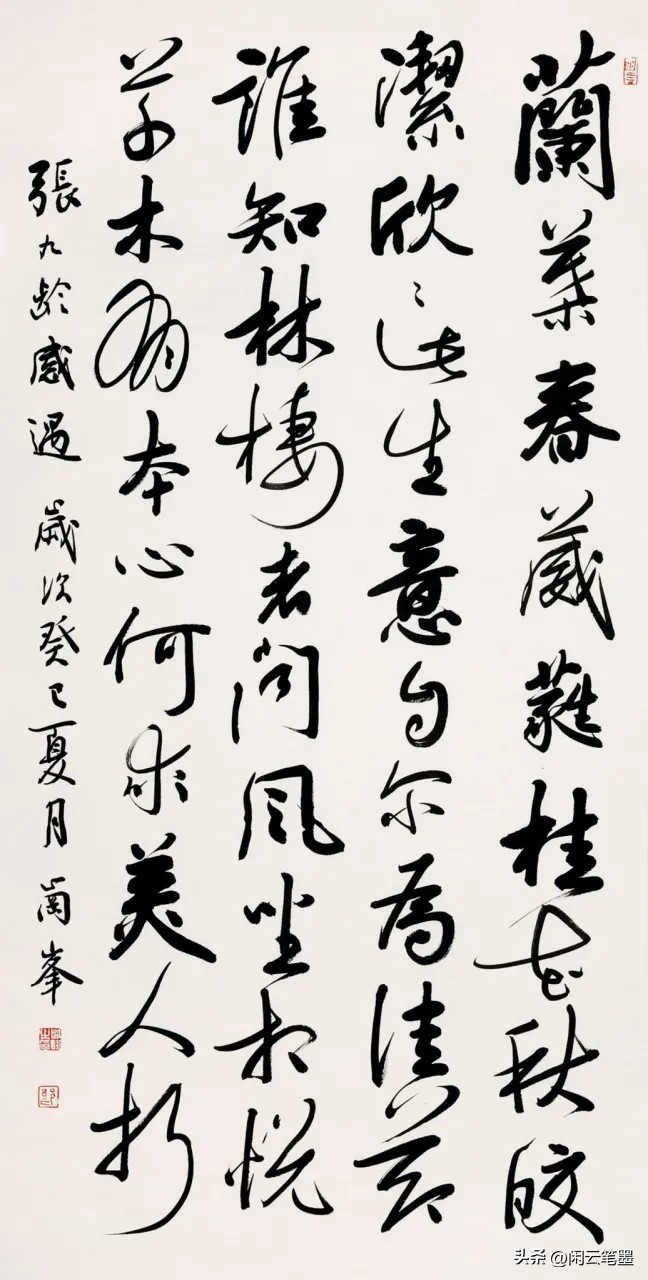 蘭葉春葳蕤桂花秋皎
潔欣〻此生意自尔為佳節
誰知林棲者聞風坐相悅
草木有本心何求美人折
張九龄感遇 歲次癸巳夏月 崗峯
头条 @闲云笔墨